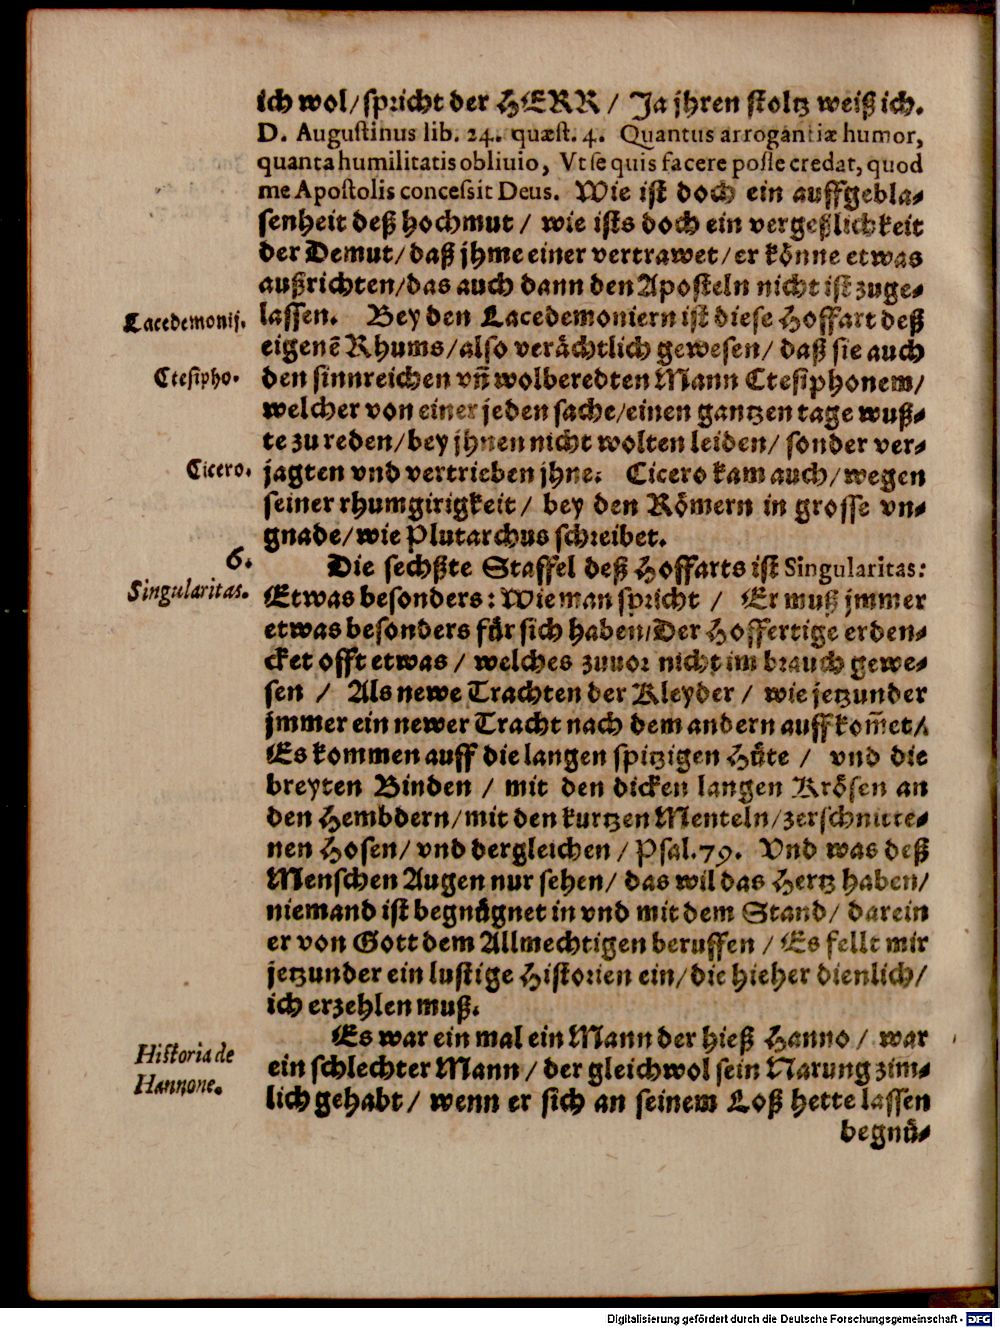 ich wol/spricht der HERR / Ja jhren stoltz weiß ich.
D. Augustinus lib. 24. quæst. 4. Quantus arrogantiæ humor,
quanta humilitatis obliuio, Vt se quis facere posse credat, quod
me Apostolis concessit Deus. Wie ist doch ein auffgebla-
senheit deß hochmut / wie ists doch ein vergeßlichkeit
der Demut/daß jhme einer vertrawet/er könne etwas
außrichten/das auch dann den Aposteln nicht ist zuge-
Lacedemonij.
lassen. Bey den Lacedemoniern ist diese Hoffart deß
eigenē Rhums/also verächtlich gewesen/ daß sie auch
Ctesipho.
den sinnreichen vñ wolberedten Mann Ctesiphonem/
welcher von einer jeden sache/einen gantzen tage wuß-
te zu reden/bey jhnen nicht wolten leiden/ sonder ver-
Cicero.
jagten vnd vertrieben jhne: Cicero kam auch/wegen
seiner rhumgirigkeit / bey den Römern in grosse vn-
gnade/wie Plutarchus schreibet.
6.
Singularitas.
Die sechßte Staffel deß Hoffarts ist Singularitas:
Etwas besonders: Wie man spricht / Er muß jmmer
etwas besonders für sich haben/Der Hoffertige erden-
cket offt etwas / welches zuuor nicht im brauch gewe-
sen / Als newe Trachten der Kleyder / wie jetzunder
jmmer ein newer Tracht nach dem andern auffkom̄et/
Es kommen auff die langen spitzigen Hüte / vnd die
breyten Binden / mit den dicken langen Krösen an
den Hembdern/mit den kurtzen Menteln/zerschnitte-
nen Hosen/ vnd dergleichen / Psal.79. Vnd was deß
Menschen Augen nur sehen/ das wil das Hertz haben/
niemand ist begnügnet in vnd mit dem Stand/ darein
er von Gott dem Allmechtigen beruffen / Es fellt mir
jetzunder ein lustige Historien ein/die hieher dienlich/
ich erzehlen muß.
Historia de
Hannone.
Es war ein mal ein Mann der hieß Hanno / war
ein schlechter Mann/ der gleichwol sein Narung zim-
lich gehabt/ wenn er sich an seinem Loß hette lassen
begnü-
Digitalisierung gefördert durch die Deutsche Forschungsgemeinschaft - DFG